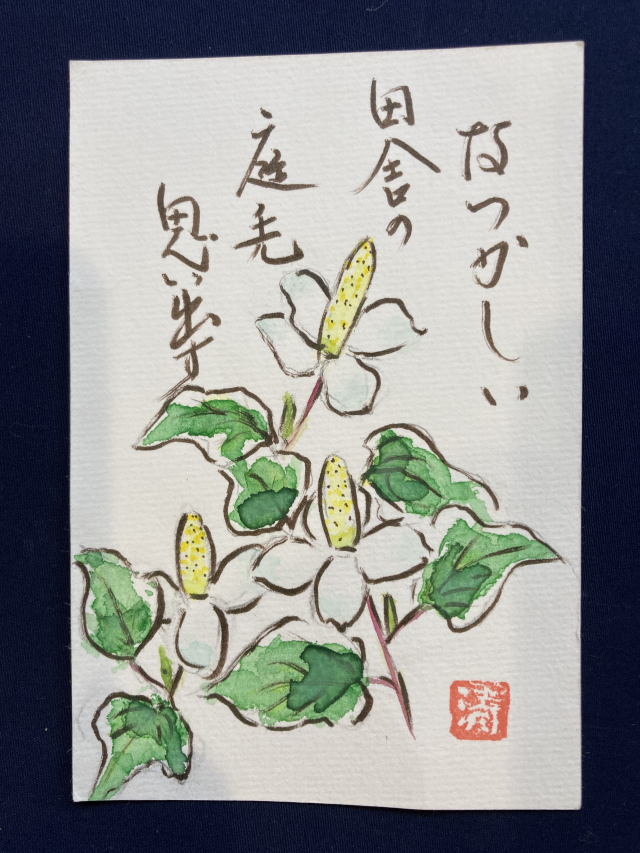 なつかしい
田舎の
庭先
思い出す
清